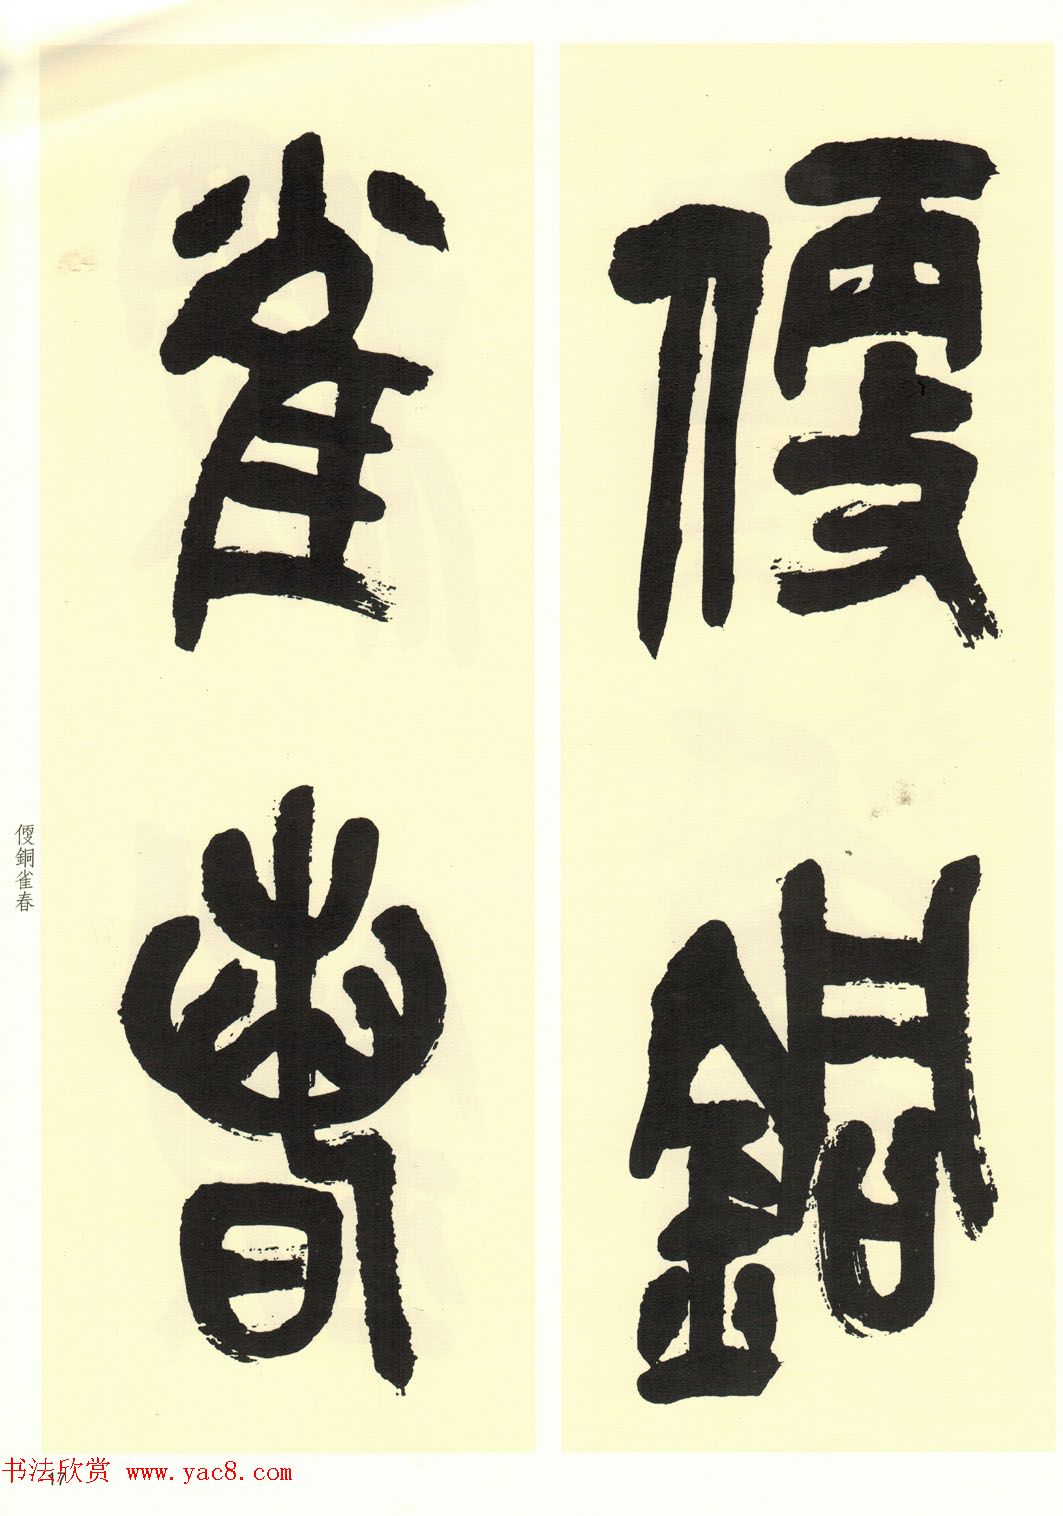 傻銅
雀春
傻銅雀春
书法欣赏 www.yac8.com
17